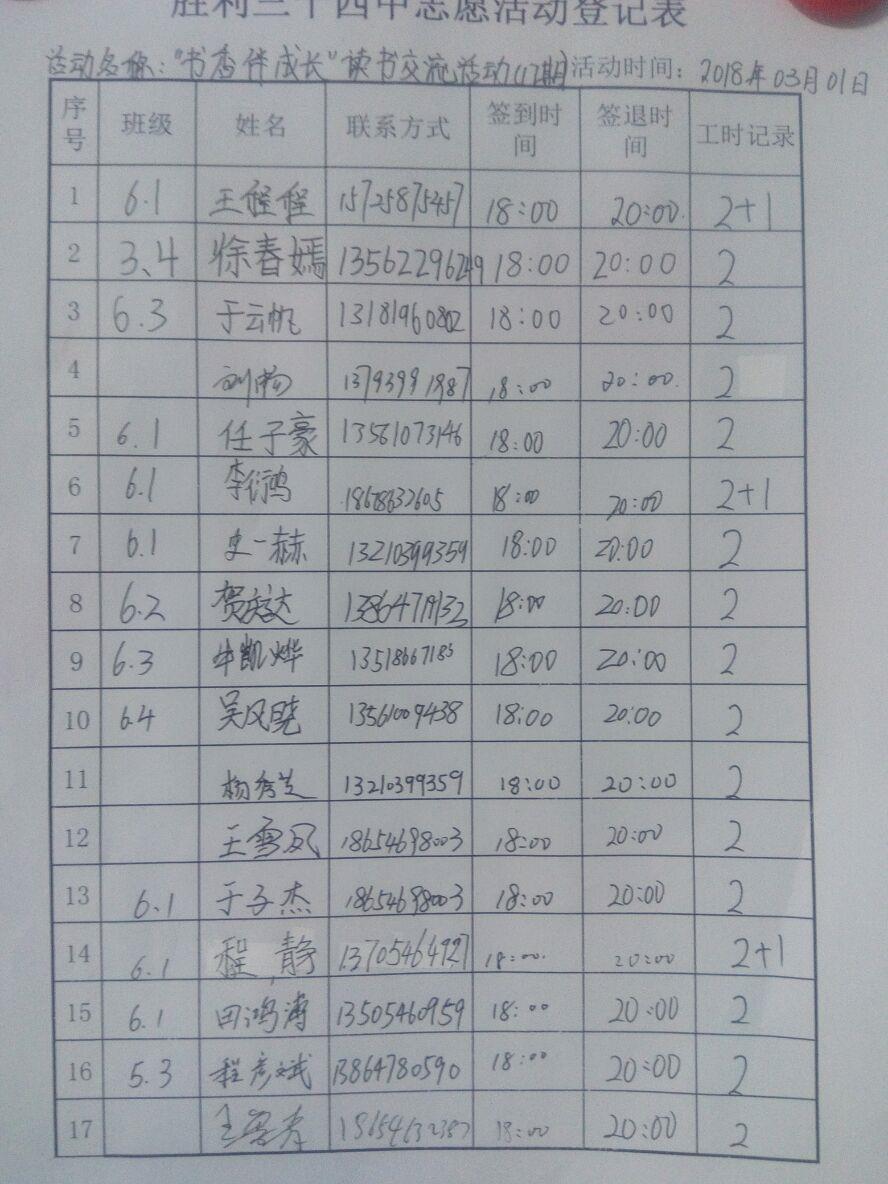 胜利三十四中志愿活动登记表
活动名称："书香伴成长"读书交流活动(17期) 活动时间：2018年03月01日
序号 班级 姓名 联系方式 签到时间 签退时间 工时记录
1 6.1 王程程 15725875457 18:00 20:00 2+1
2 3、4 徐春嫣 13562296249 18:00 20:00 2
3 6.3 于云帆 13181960802 18:00 20:00 2
4 刘畅 13793991987 18:00 20:00 2
5 6.1 任子豪 13561073146 18:00 20:00 2
6 6.1 李衍鸿 18678632605 18:00 20:00 2+1
7 6.1 史一赫 13210399359 18:00 20:00 2
8 6.2 18:00 20:00 2
9 6.3 牛凯烨 13518667185 18:00 20:00 2
10 6.4 吴风晓 13561009438 18:00 20:00 2
11 杨秀芝 13210399359 18:00 20:00 2
12 王雪凤 18654698003 18:00 20:00 2
13 6.1 于子杰 18654698003 18:00 20:00 2
14 6.1 程静 13705464927 18:00 20:00 2+1
15 6.1 田鸿涛 13505460959 18:00 20:00 2
16 5.3 程彦斌 13864780590 18:00 20:00 2
17 18:00 20:00 2